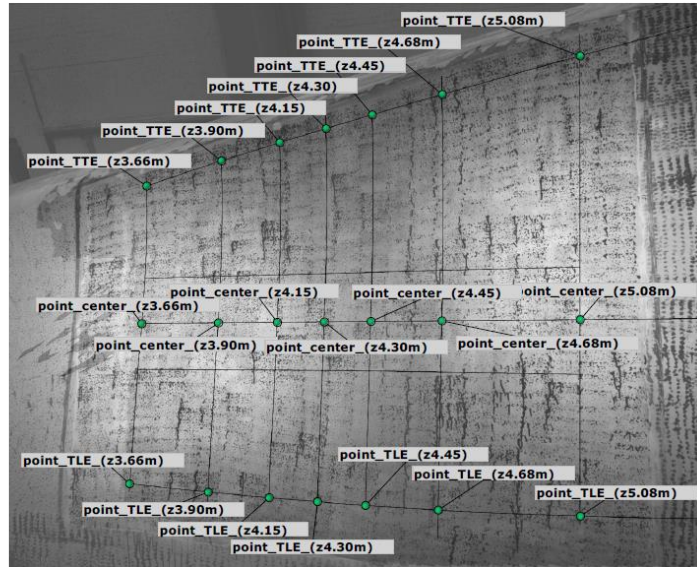 point_TTE_(z5.08m)
point_TTE_(z4.68m)
point_TTE_(z4.45)
point_TTE_(z4.30)
point_TTE_(z4.15)
point_TTE_(z3.90m)
point_TTE_(z3.66m)
point_center_(z4.15)
point_center_(z4.45)
point_center_(z5.08m)
point_center_(z3.66m)
point_center_(z3.90m)
point_center_(z4.30m)
point_center_(z4.68m)
point_TLE_(z3.66m)
point_TLE_(z4.45)
point_TLE_(z4.68m)
point_TLE_(z5.08m)
point_TLE_(z3.90m)
point_TLE_(z4.15)
point_TLE_(z4.30m)